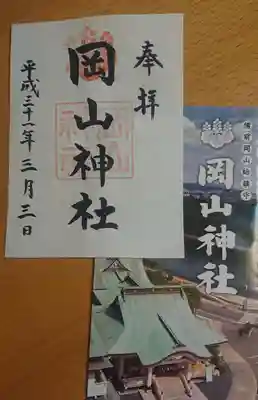 奉拝
岡山神社
平成三十一年三月三日
備前岡山総鎮守
岡山神社